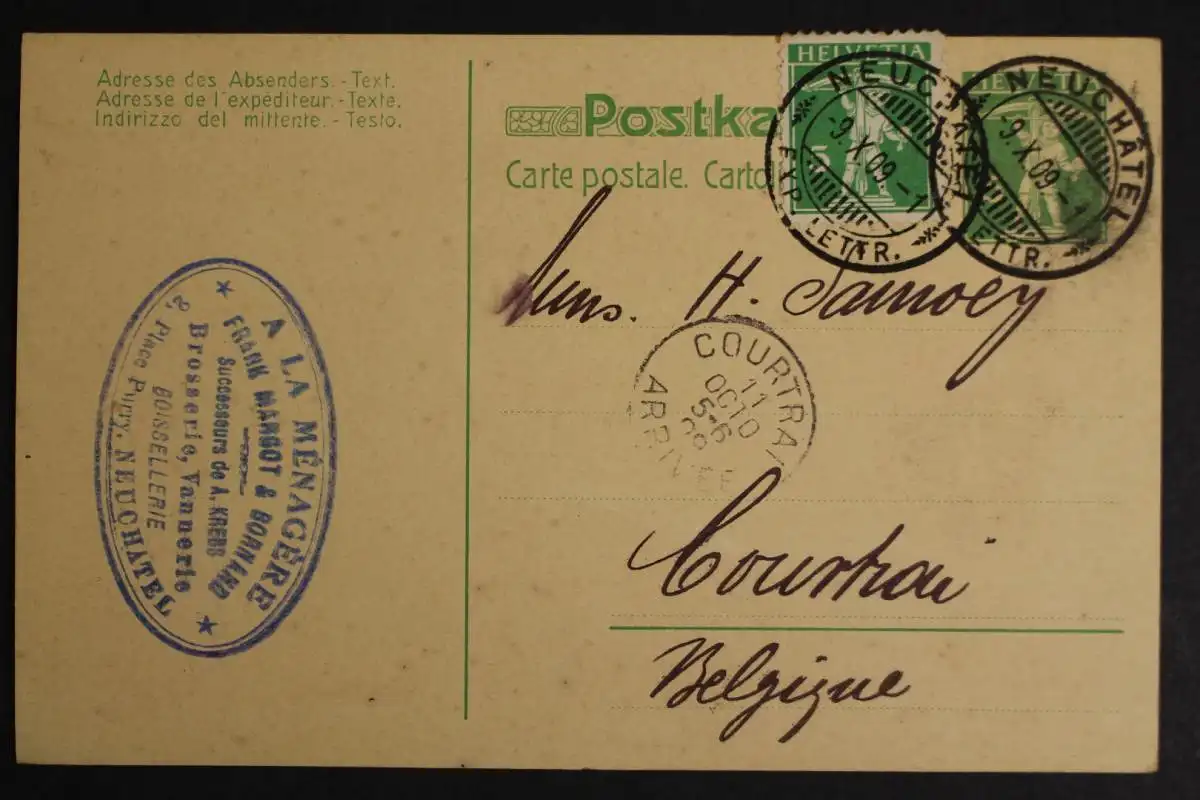 Adresse des Absenders.-Text.
Adresse de l'expéditeur.-Texte.
Indirizzo del mittente.-Testo.
Postka
Carte postale. Cartol
HELVETIA
5
NEUCHÂTEL
-9.X.09.-1
EXP. LETTR.
HELVETI
NEUCHÂTEL
-9.X.09.-1
LETTR.
H. Samoey
COURTRAI
11
OCTO
5-6
09
ARRIV
Courtrai
Belgique
A LA MÉNAGÈRE
FRANK MARGOT & BORNAND
Successeurs de A. KREBS
Brosserie, Vannerie
BOISSELLERIE
2, Place Purry, NEUCHATEL